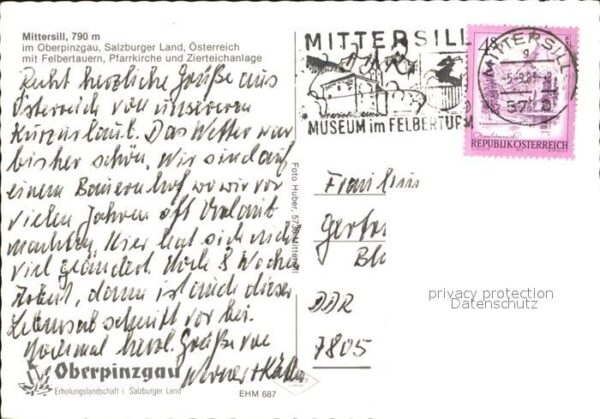 Mittersill, 790 m
im Oberpinzgau, Salzburger Land, Österreich
mit Felbertauern, Pfarrkirche und Zierteichanlage
Recht herzliche Grüße aus
Österreich von unserem
Kurzurlaub. Das Wetter war
bisher schön. Wir sind auf
einem Bauernhof wo wir vor
vielen Jahren oft Urlaub
machten. Hier hat sich nicht
viel geändert. Noch 8 Wochen
Arbeit, dann ist auch dieser
Lebensabschnitt vor bei.
Nochmal herzl. Grüße von
Werner + Käthe
Oberpinzgau
Erholungslandschaft i. Salzburger Land
EHM 687
Foto Huber, 5730 Mittersill
MITTERSILL
MUSEUM im FELBERTURM
MITTERSILL
5730
REPUBLIK ÖSTERREICH
Fräulein
Gertr
DDR
7805
privacy protection
Datenschutz